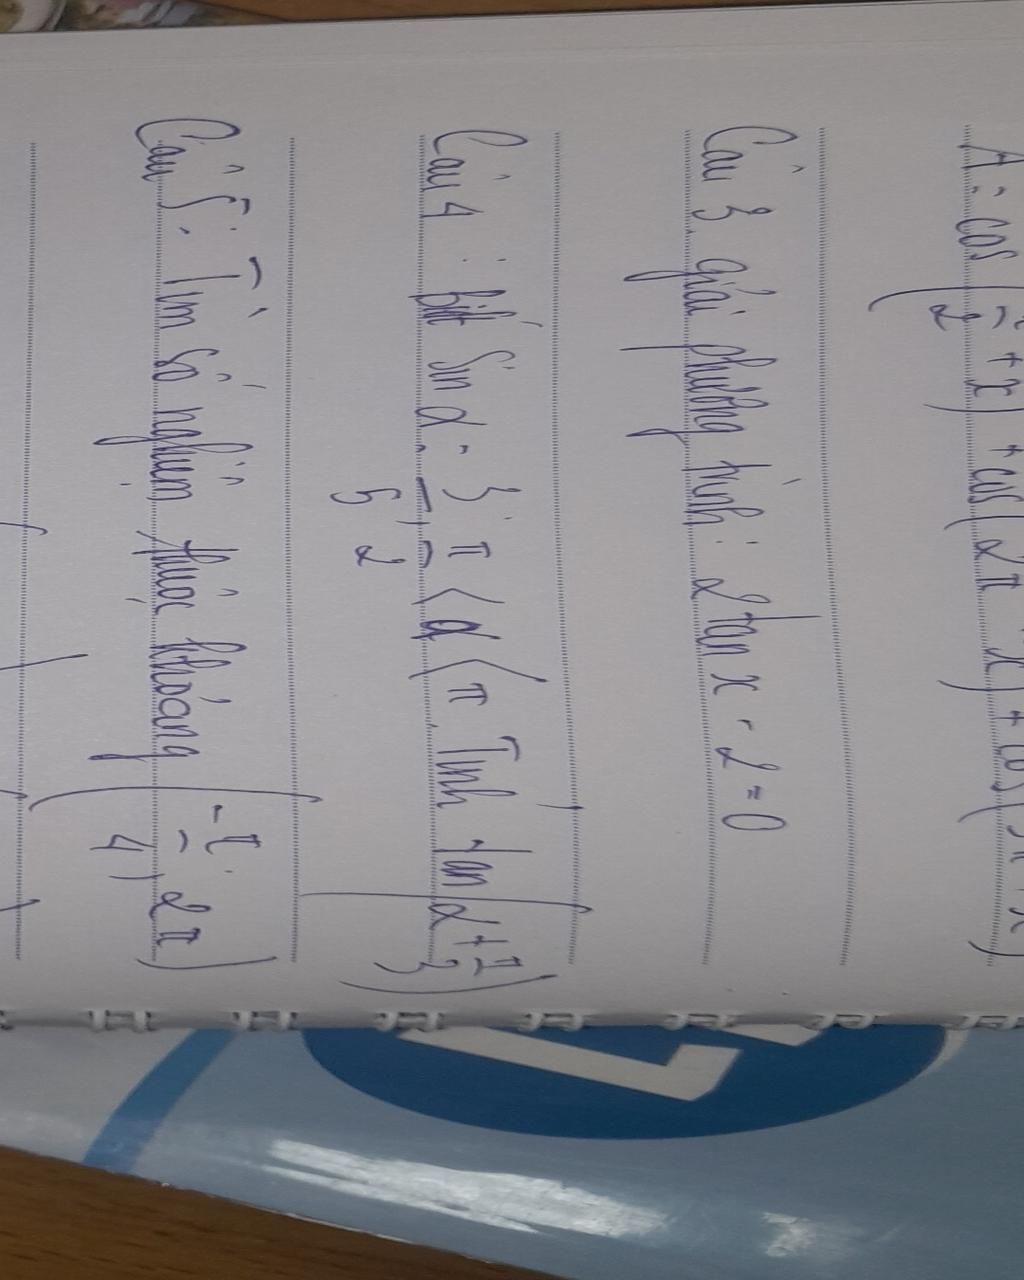 A = cos(π/2 + x) + cos(2π - x) + cos(3π + x)
Câu 3. giải phương trình: 2tan x - 2 = 0
Câu 4: biết Sin α = 3/5, π/2 < α < π. Tính tan(α + π/3)
Câu 5: Tìm số nghiệm thuộc khoảng (-π/4, 2π)